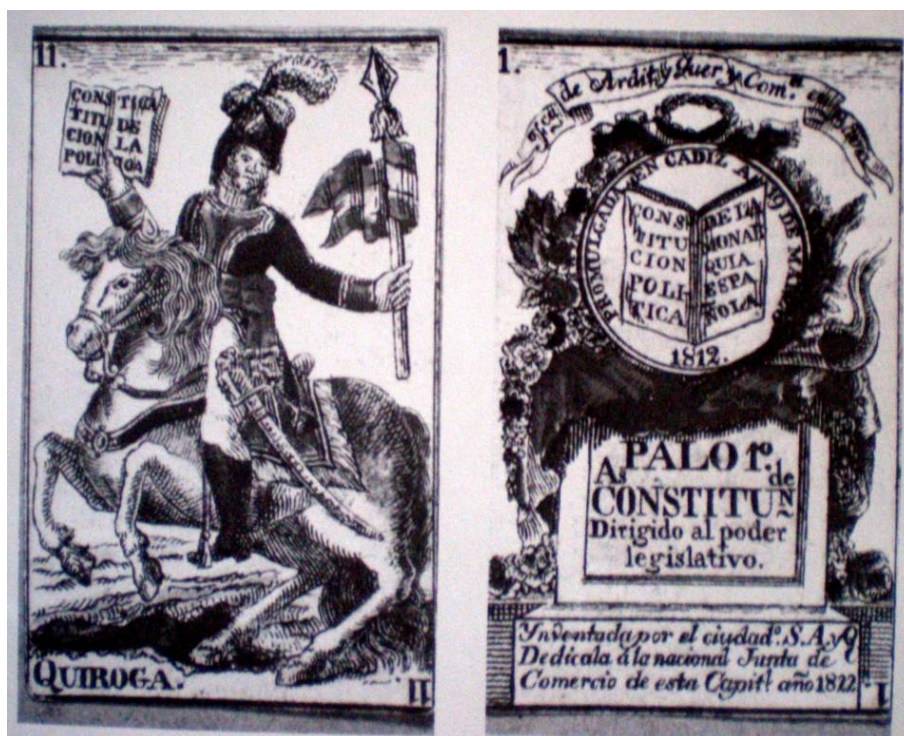 11.
CONS TICA
TITU DE
CION LA
POLI
QUIROGA.
11
1.
de Ardit y Quer y Com.ª en
PROMULGADA EN CADIZ A 19 DE MARZO
1812.
CONS
TITU
CION
POLI
TICA
DE LA
MONAR
QUIA
ESPA
ÑOLA
PALO 1º.
As de
CONSTITUN
Dirigido al poder
legislativo.
Ynventada por el ciudadº. S. A. y Q
Dedicala á la nacional Junta de
Comercio de esta Capitl. año 1822
1.